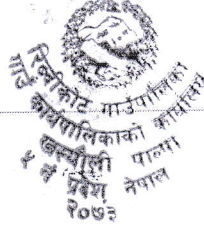 रिब्दीकोट गाउँपालिका
गाउँ कार्यपालिकाको कार्यालय
खस्यौली पाल्पा
५ नं प्रदेश नेपाल
२०७३